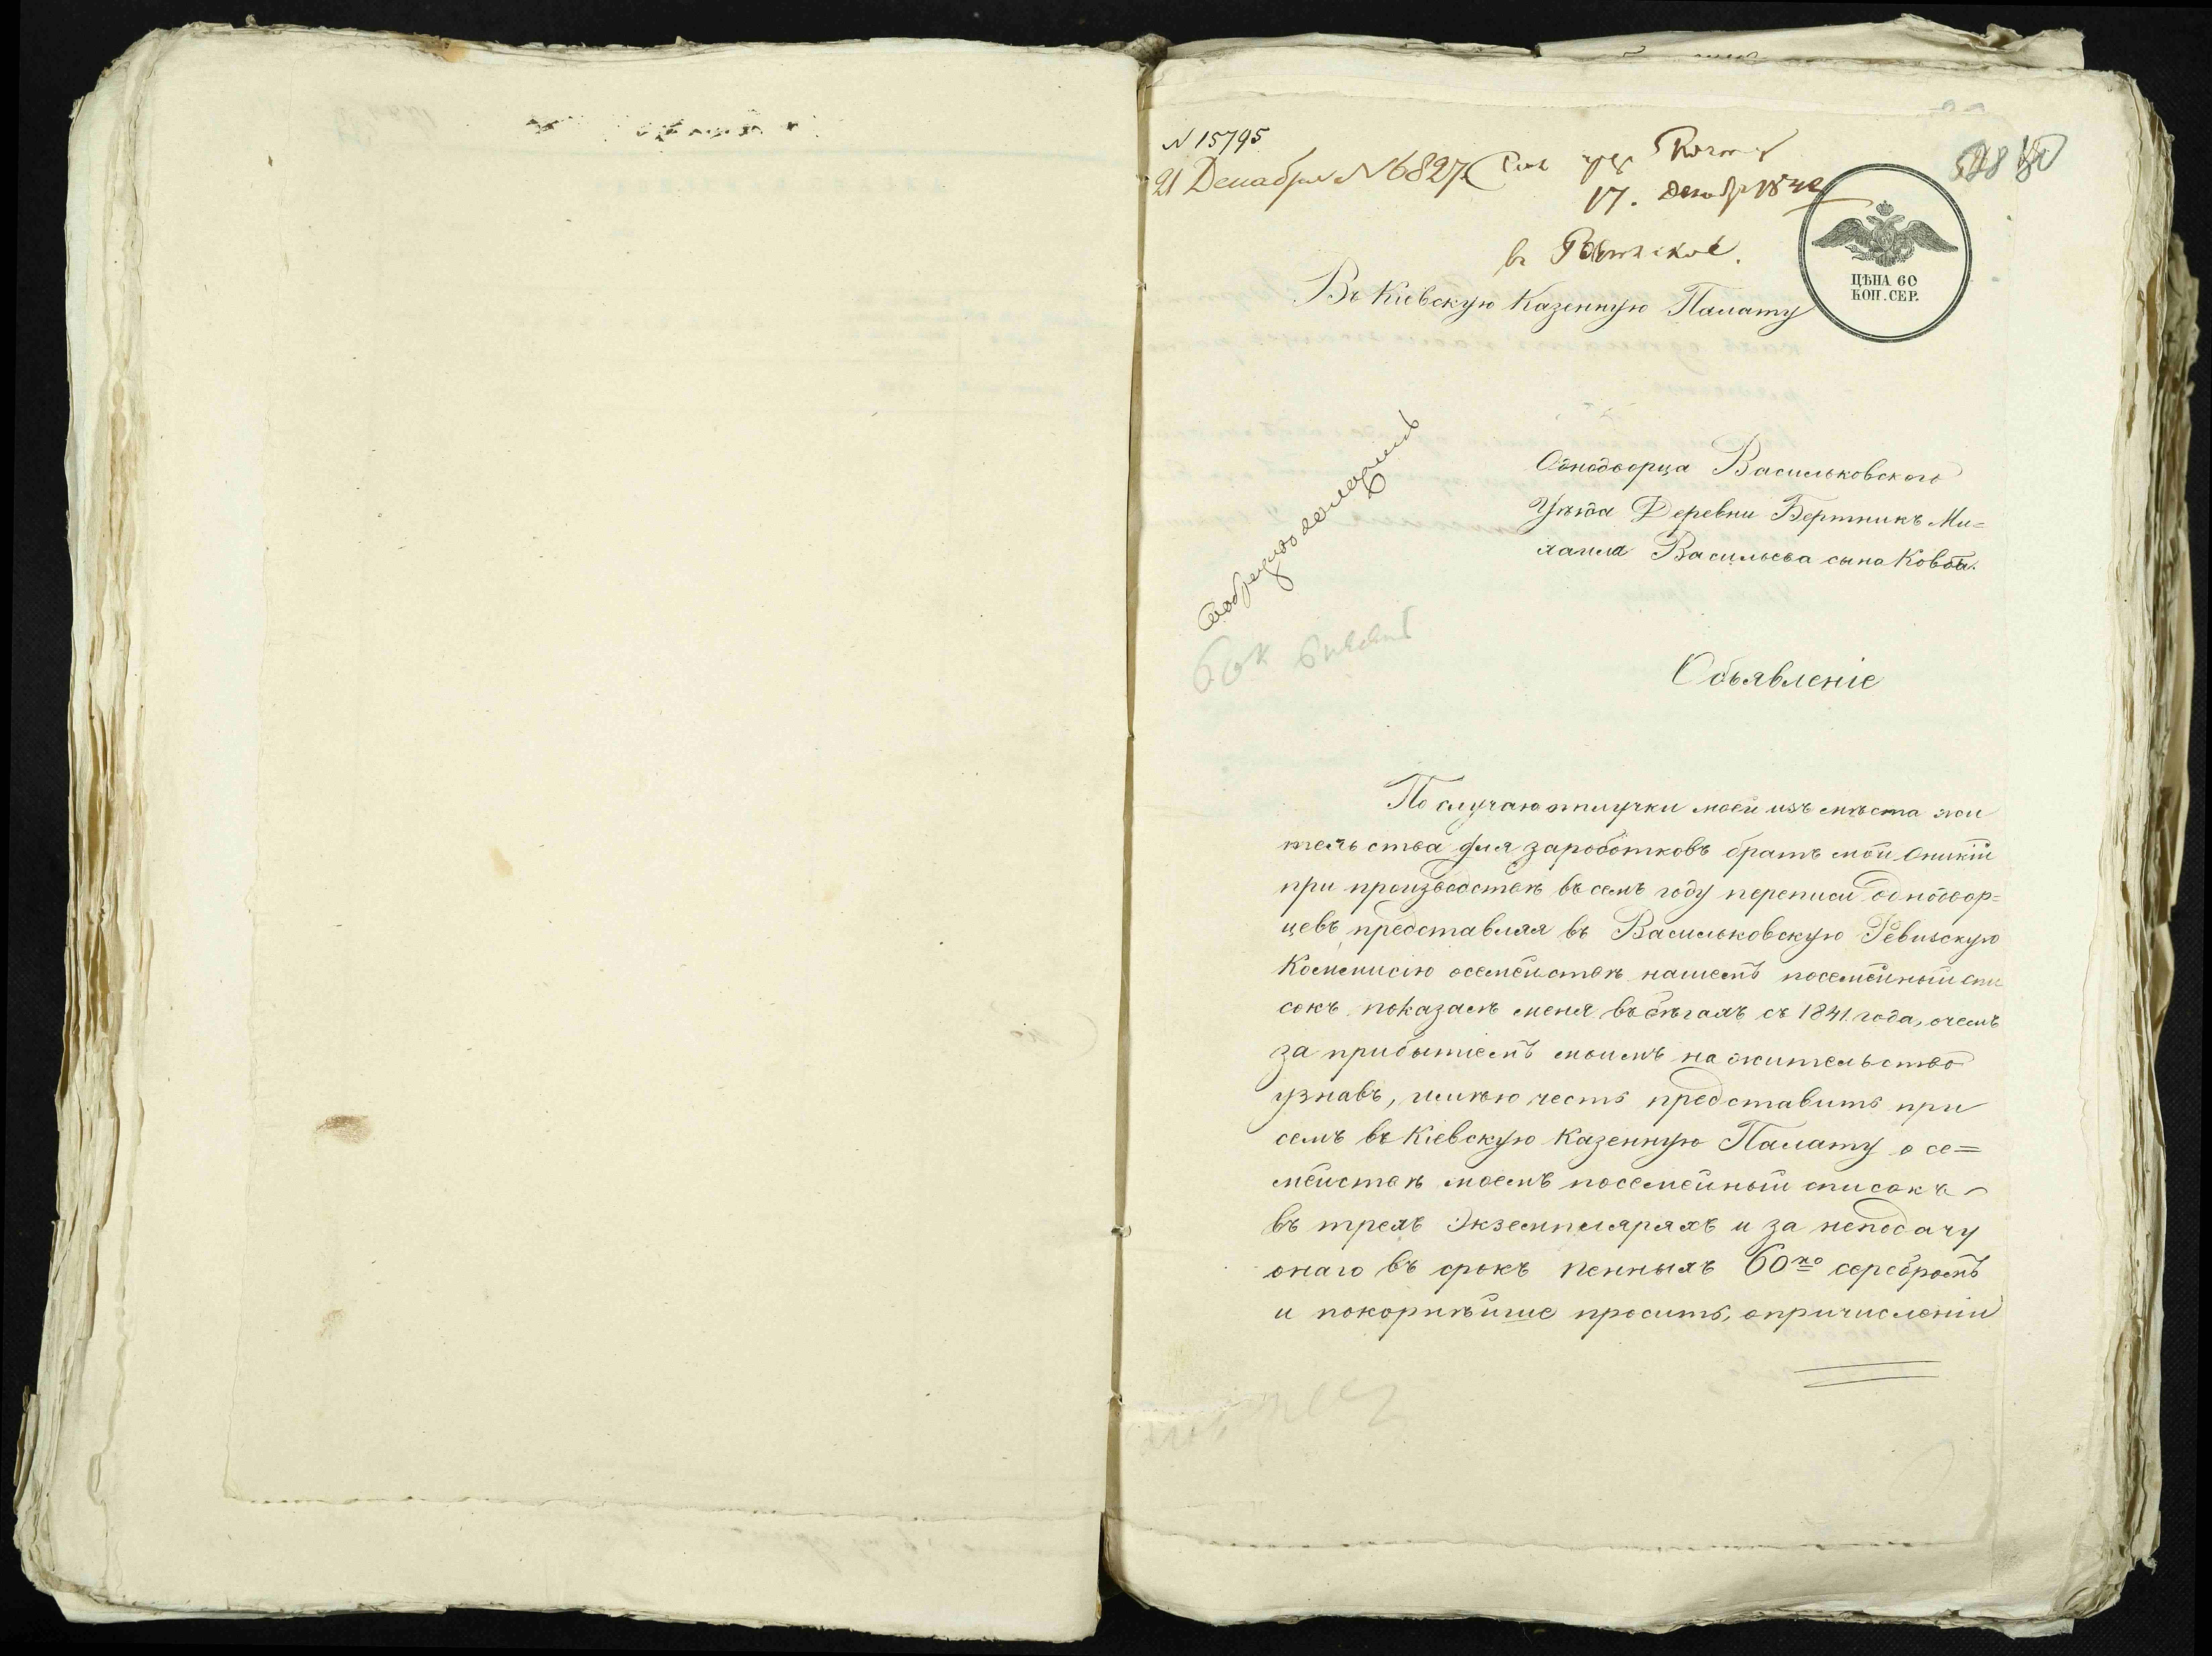 N 15795
21 Декабря N 6827
17. Декабр 1842
ЦѢНА 60
КОП. СЕР.
Въ Кіевскую Казенную Палату
Однодворца Васильковского
Уѣзда Деревни Бертникъ Ми=
хаила Васильева сына
Объявленіе
По случаю отлучки моей изъ мѣста жи
тельства для заработковъ братъ мой Оникій
при производствѣ въ семъ году переписи однодвор=
цевъ представляя въ Васильковскую Ревизскую
Коммисію осемействѣ нашемъ посемейный спи
сокъ показалъ меня въ бѣгахъ съ 1841 года, очемъ
за прибытіемъ моимъ на жительство
узнавъ, имѣю честь представить при
семъ въ Кіевскую Казенную Палату о се=
мействѣ моемъ посемейный списокъ
въ трехъ экземплярахъ и за неподачу
онаго въ срокъ пенныхъ 60 ко серебромъ
и покорнѣйше просить, опричисленіи